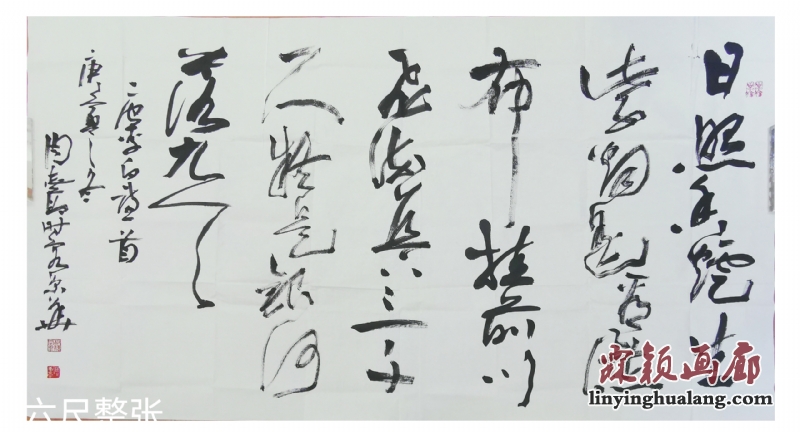 日照香炉生
紫烟遥看瀑
布挂前川
飞流直下三千
尺疑是银河
落九天
唐李白诗一首
庚寅之冬
周 时 京华
六尺整张
霖颖画廊
linyinghualang.com